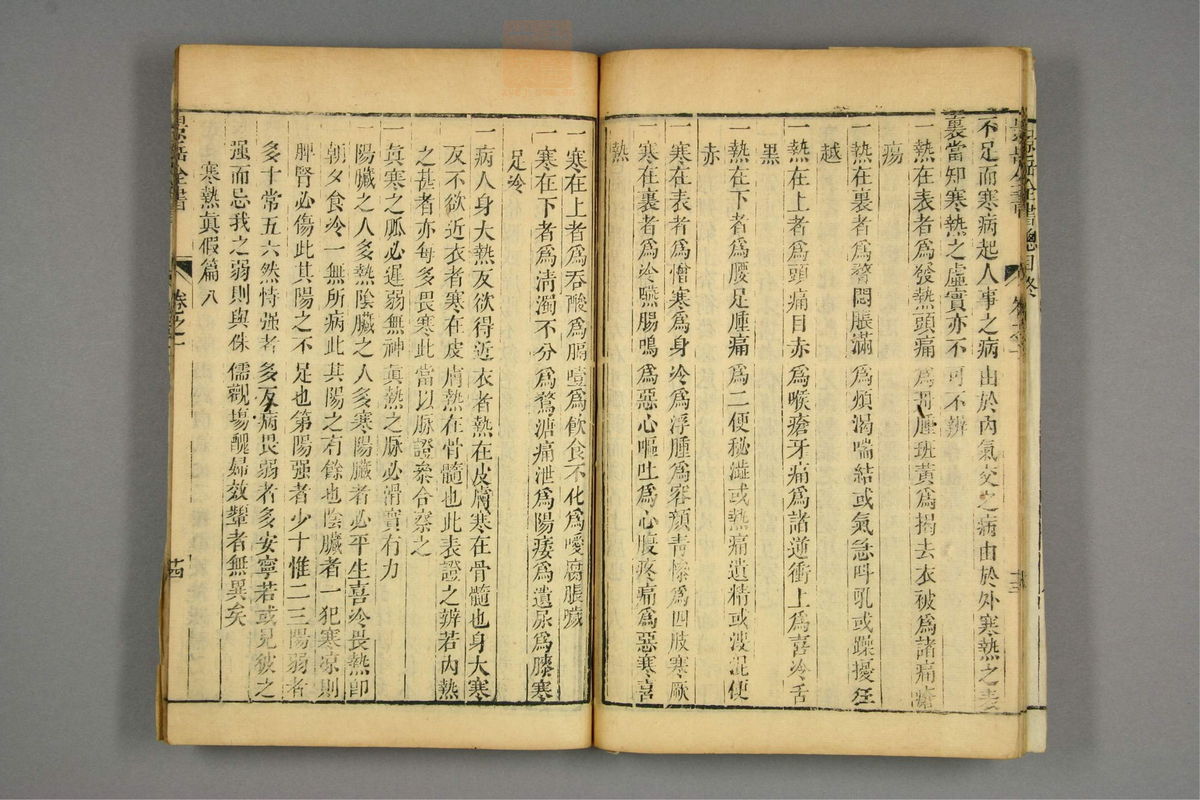 不足而寒病起人事之病由於內氣交之病由於外寒熱之表
裏當知寒熱之虛實亦不可不辨
一熱在表者為發熱頭痛為丹腫斑黃為揭去衣被為諸痛瘡
瘍
一熱在裏者為瞀悶脹滿為煩渴喘結或氣急叫吼或躁擾狂
越
一熱在上者為頭痛目赤為喉瘡牙痛為諸逆衝上為喜冷舌
黑
一熱在下者為腰足腫痛為二便秘澁或熱痛遺精或溲混便
赤
一寒在表者為憎寒為身冷為浮腫為容顏青慘為四肢寒厥
一寒在裏者為冷嚥腸鳴為惡心嘔吐為心腹疼痛為惡寒喜
熱
一寒在上者為吞酸為膈噎為飲食不化為噯腐脹噦
一寒在下者為清濁不分為鶩溏痛泄為陽痿為遺尿為膝寒
足冷
一病人身大熱反欲得近衣者熱在皮膚寒在骨髓也身大寒
反不欲近衣者寒在皮膚熱在骨髓也此表證之辨若內熱
之甚者亦每多畏寒此當以脉證叅合察之
一眞寒之脈必遲弱無神眞熱之脉必滑實有力
一陽臟之人多熱陰臟之人多寒陽臟者必平生喜冷畏熱卽
朝夕食冷一無所病此其陽之有餘也陰臟者一犯寒凉則
脾腎必傷此其陽之不足也第陽强者少十惟二三陽弱者
多十常五六然恃强者多反病畏弱者多安寧若或見彼之
强而忌我之弱則與侏儒觀塲醜婦效顰者無異矣
寒熱眞假篇八
景岳全書
卷之一
十四